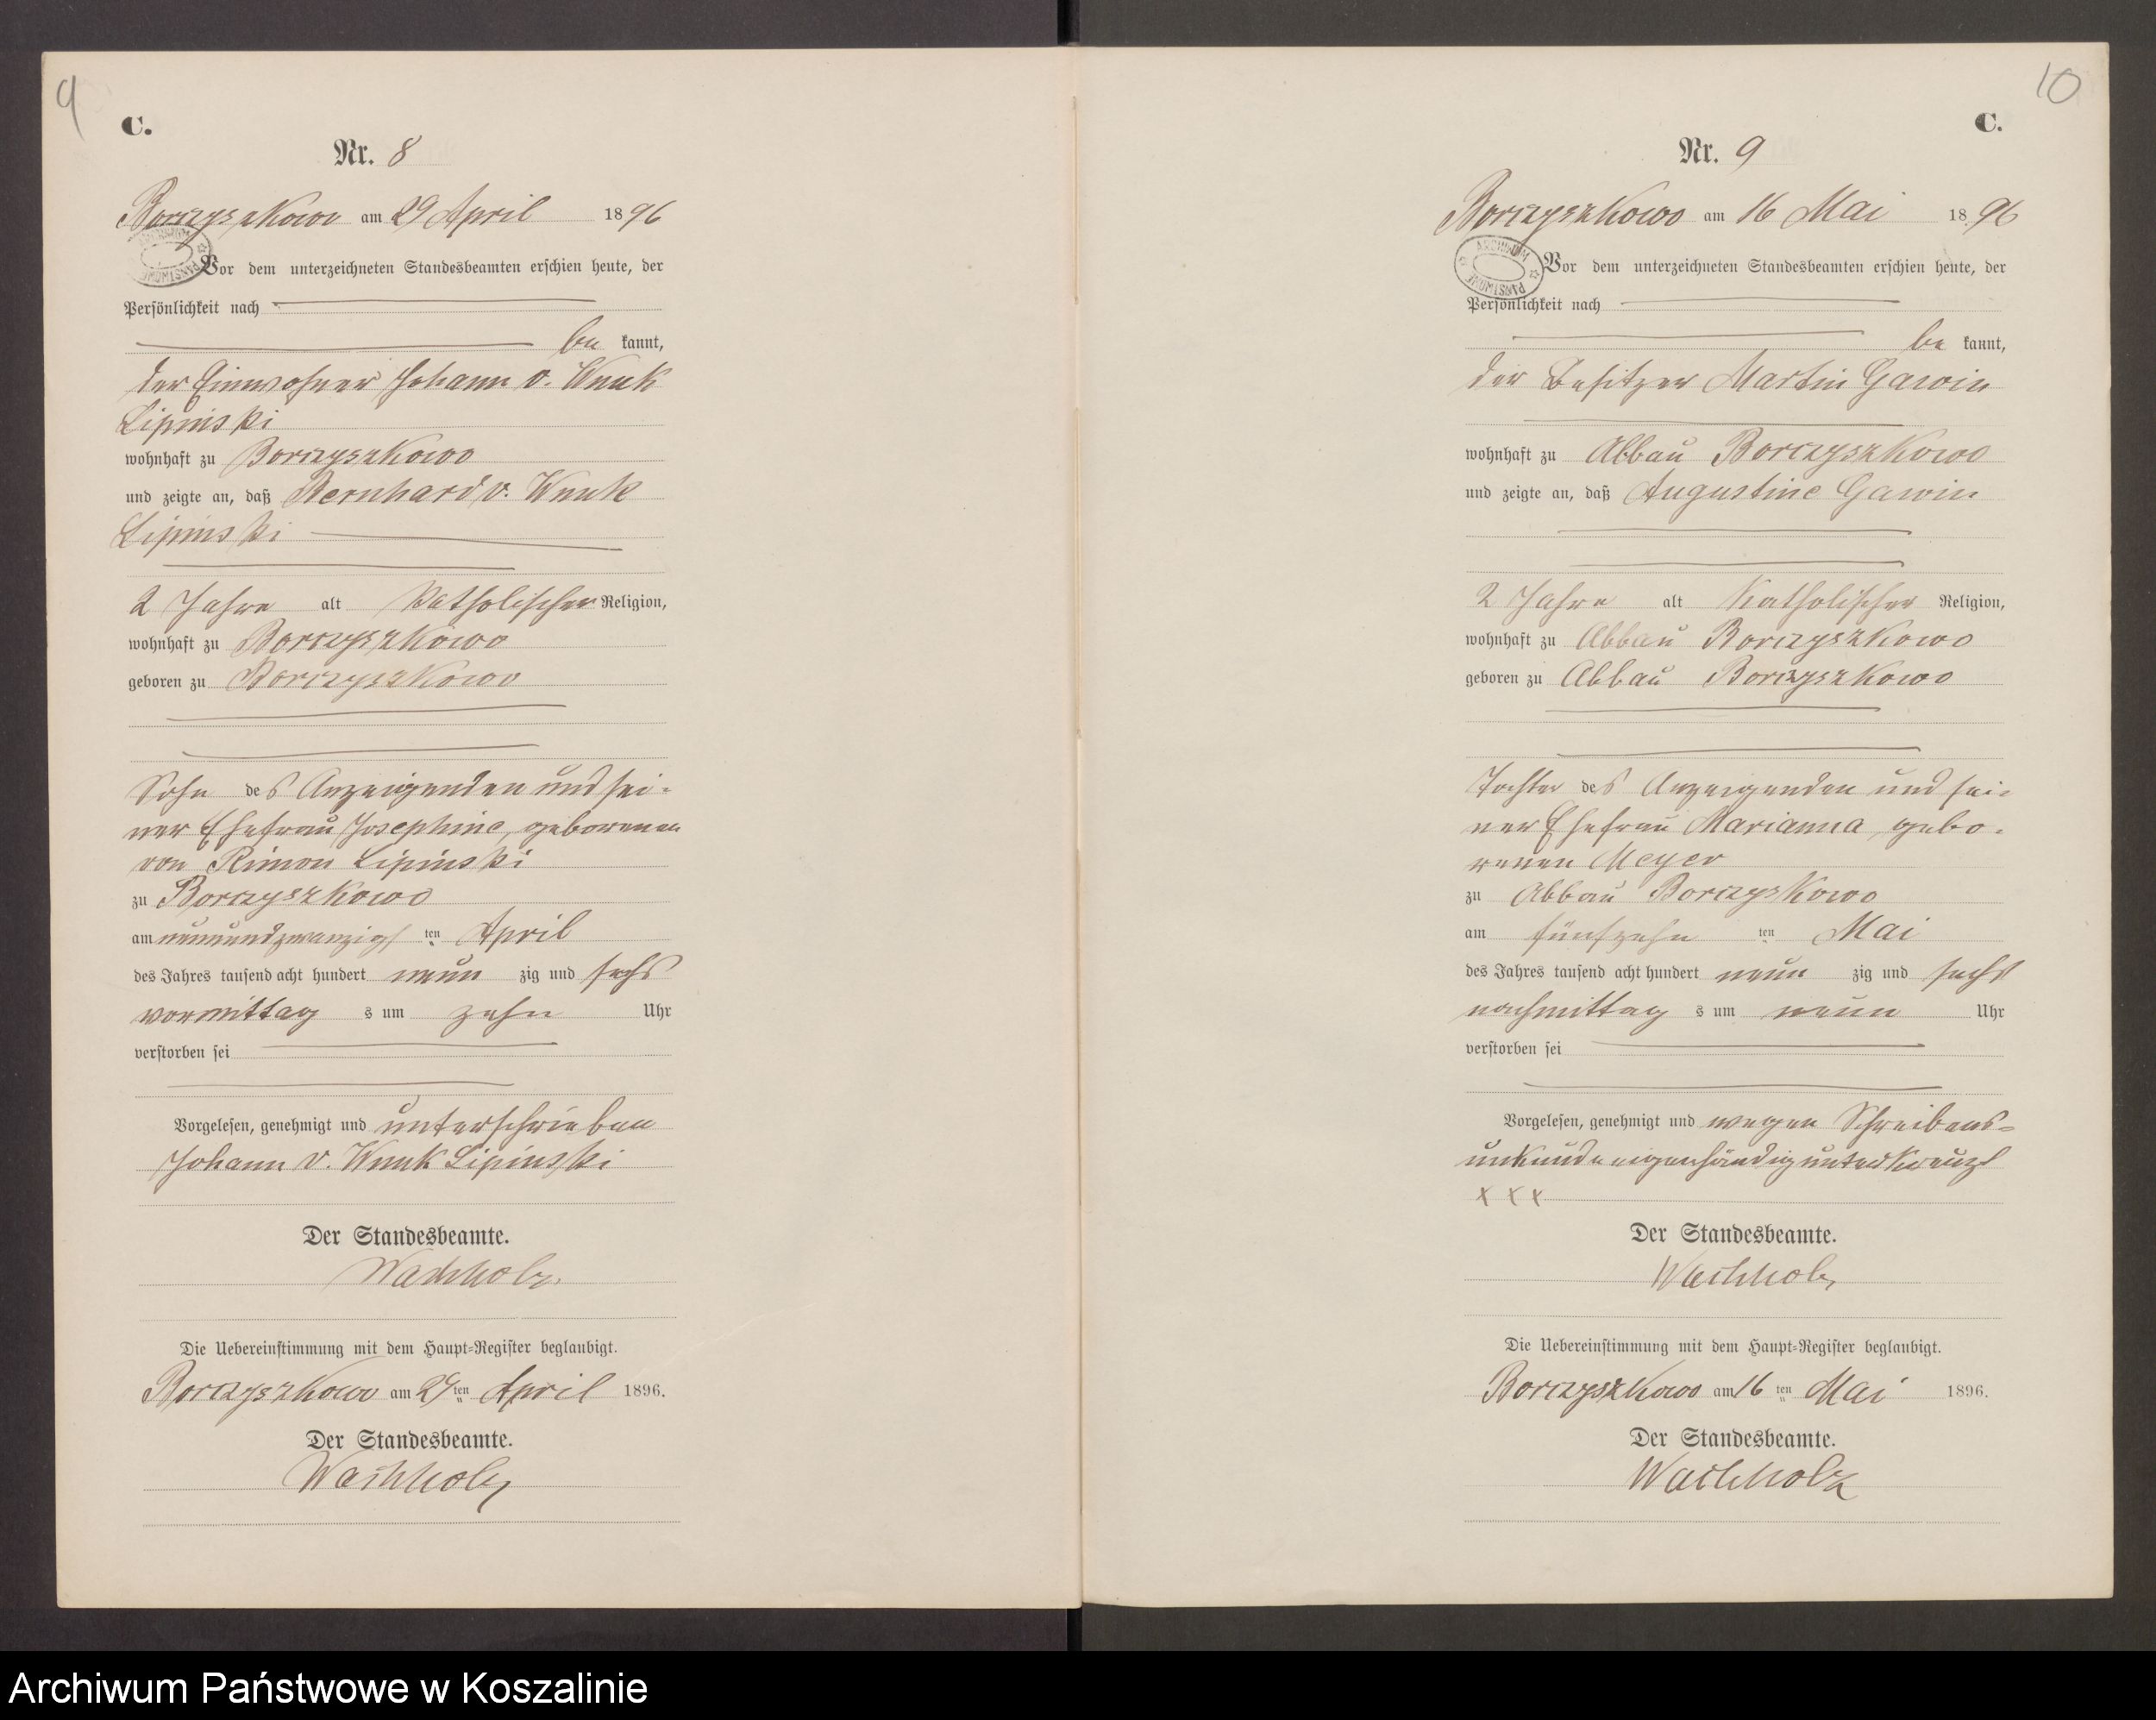 9
C.
Nr. 8
Borczyszkowo am 29 April 1896
Vor dem unterzeichneten Standesbeamten erschien heute, der
Persönlichkeit nach
be kannt,
der Einwohner Johann v. Wnuk
Lipinski
wohnhaft zu Borczyszkowo
und zeigte an, daß Bernhard v. Wnuk
Lipinski
2 Jahre alt katholischer Religion,
wohnhaft zu Borczyszkowo
geboren zu Borczyszkowo
Sohn des Anzeigenden und sei-
ner Ehefrau Josephine, geborenen
von Rimon Lipinski
zu Borczyszkowo
am neunundzwanzigs ten April
des Jahres tausend acht hundert neun zig und sechs
vormittag s um zehn Uhr
verstorben sei
Vorgelesen, genehmigt und unterschrieben
Johann v. Wnuk Lipinski
Der Standesbeamte.
Wachholz.
Die Uebereinstimmung mit dem Haupt-Register beglaubigt.
Borczyszkowo am 29 ten April 1896.
Der Standesbeamte.
Wachholz
10
C.
Nr. 9
Borczyszkowo am 16 Mai 1896
ARCHIWUM PAŃSTWOWE
Vor dem unterzeichneten Standesbeamten erschien heute, der
Persönlichkeit nach
be kannt,
der Besitzer Martin Gawin
wohnhaft zu Abbau Borczyszkowo
und zeigte an, daß Augustine Gawin
2 Jahre alt katholischer Religion,
wohnhaft zu Abbau Borczyszkowo
geboren zu Abbau Borczyszkowo
Tochter des Anzeigenden und sei-
ner Ehefrau Marianna, gebo-
renen Meyer
zu Abbau Borczyskowo
am fünfzehn ten Mai
des Jahres tausend acht hundert neun zig und sechs
nachmittag s um neun Uhr
verstorben sei
Vorgelesen, genehmigt und wegen Schreibens-
unkunde eigenhändig unterkreuzt
x x x
Der Standesbeamte.
Wachholz
Die Uebereinstimmung mit dem Haupt-Register beglaubigt.
Borczyszkowo am 16 ten Mai 1896.
Der Standesbeamte.
Wachholz
Archiwum Państwowe w Koszalinie